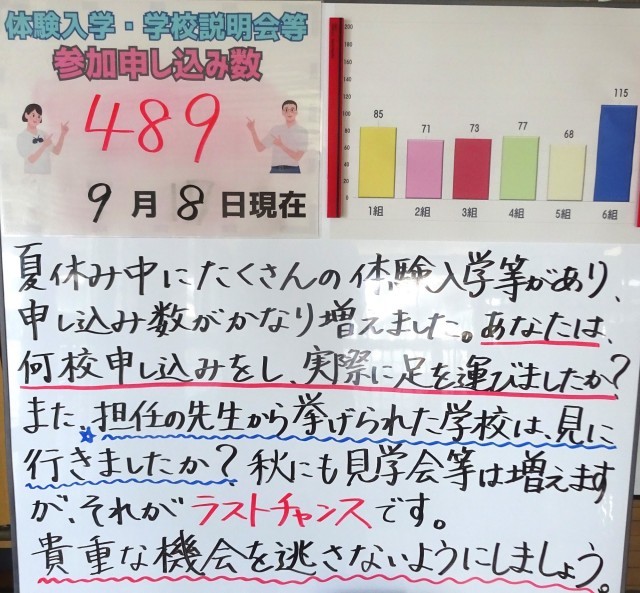 体験入学・学校説明会等
参加申し込み数
489
9月8日現在
200
180
160
140
120
100
80
60
40
20
0
85
71
73
77
68
115
1組
2組
3組
4組
5組
6組
夏休み中にたくさんの体験入学等があり、
申し込み数がかなり増えました。あなたは、
何校申し込みをし、実際に足を運びましたか?
また、担任の先生から挙げられた学校は、見に
行きましたか?秋にも見学会等は増えます
が、それがラストチャンスです。
貴重な機会を逃さないようにしましょう。